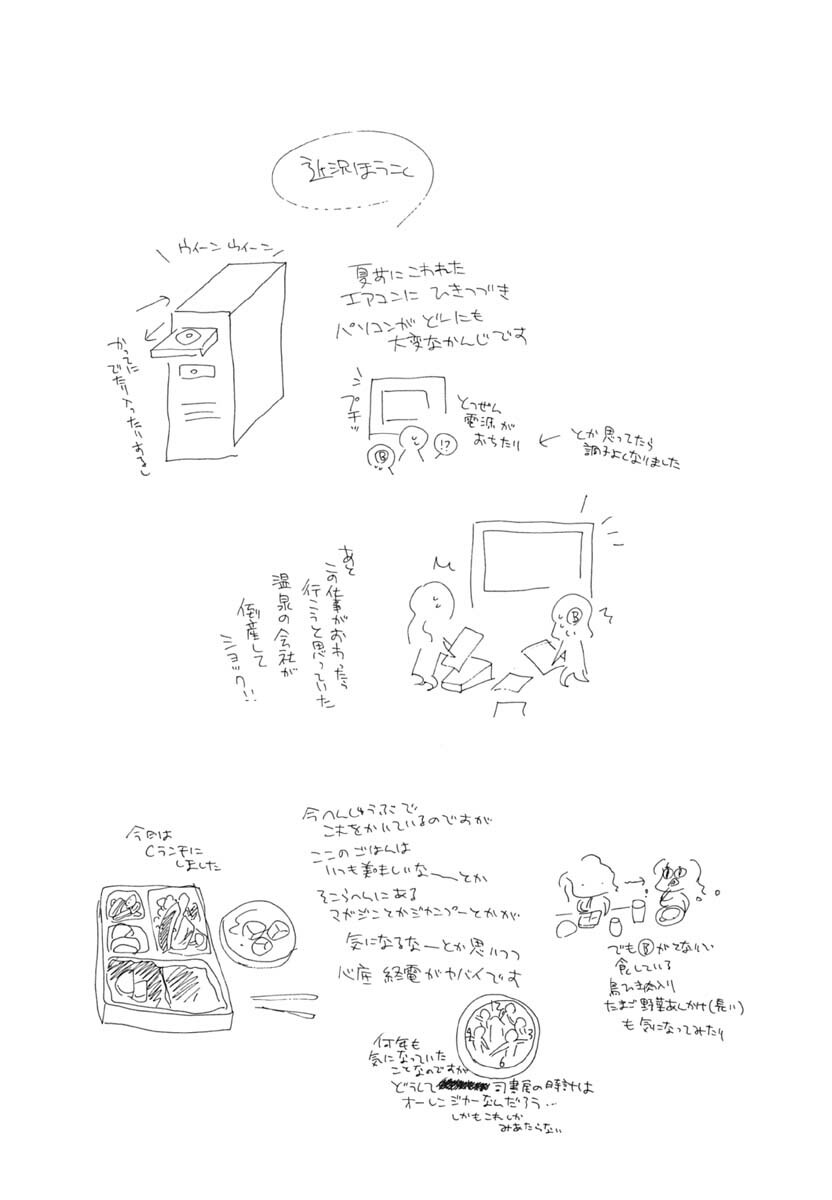 近況ほうこく
ウィーン ウィーン
かってに
でたり入ったりするし
夏前にこわれた
エアコンに ひきつづき
パソコンが どーにも
大変なかんじです
プチッ
とつぜん
電源が
おちたり
B
!?
とか思ってたら
調子よくなりました
あと
この仕事がおわったら
行こうと思っていた
温泉の会社が
倒産して
ショック!!
B
今日は
Cランチに
しました
今へんしゅうぶで
これをかいているのですが
ここのごはんは
いつも美味しいなーとか
そこらへんにある
マガジンとかジャンプーとかが
気になるなーとか思いつつ
心底 終電がヤバイです
でもBがたのんで
食している
鳥ひき肉入り
たまご野菜あんかけ(長い)
も気になってみたり
12
3
6
9
何年も
気になっていた
ことなのですが
どうして
司書屋の時計は
オーレンジャーなんだろう…
しかもこれしか
みあたらない